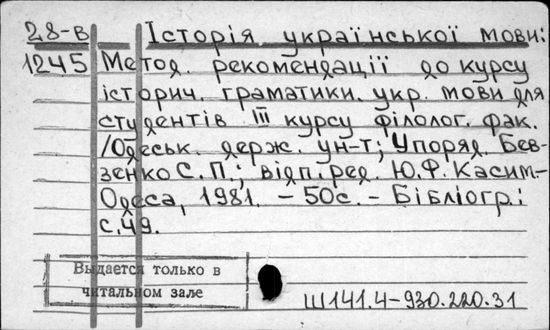 28-в Історія української мови:
1245 Метод. рекомендації до курсу
історич. граматики. укр. мови для
студентів III курсу філолог. фак.
/Одеськ. держ. ун-т; Упоряд. Бев-
зенко С.П.; відп.ред. Ю.Ф.Касим-
Одеса, 1981. – 50с. – Бібліогр.:
с.49.
Выдается только в
читальном зале
Ш141.4–930.220.31